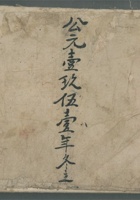 公元壹玖伍壹年冬立